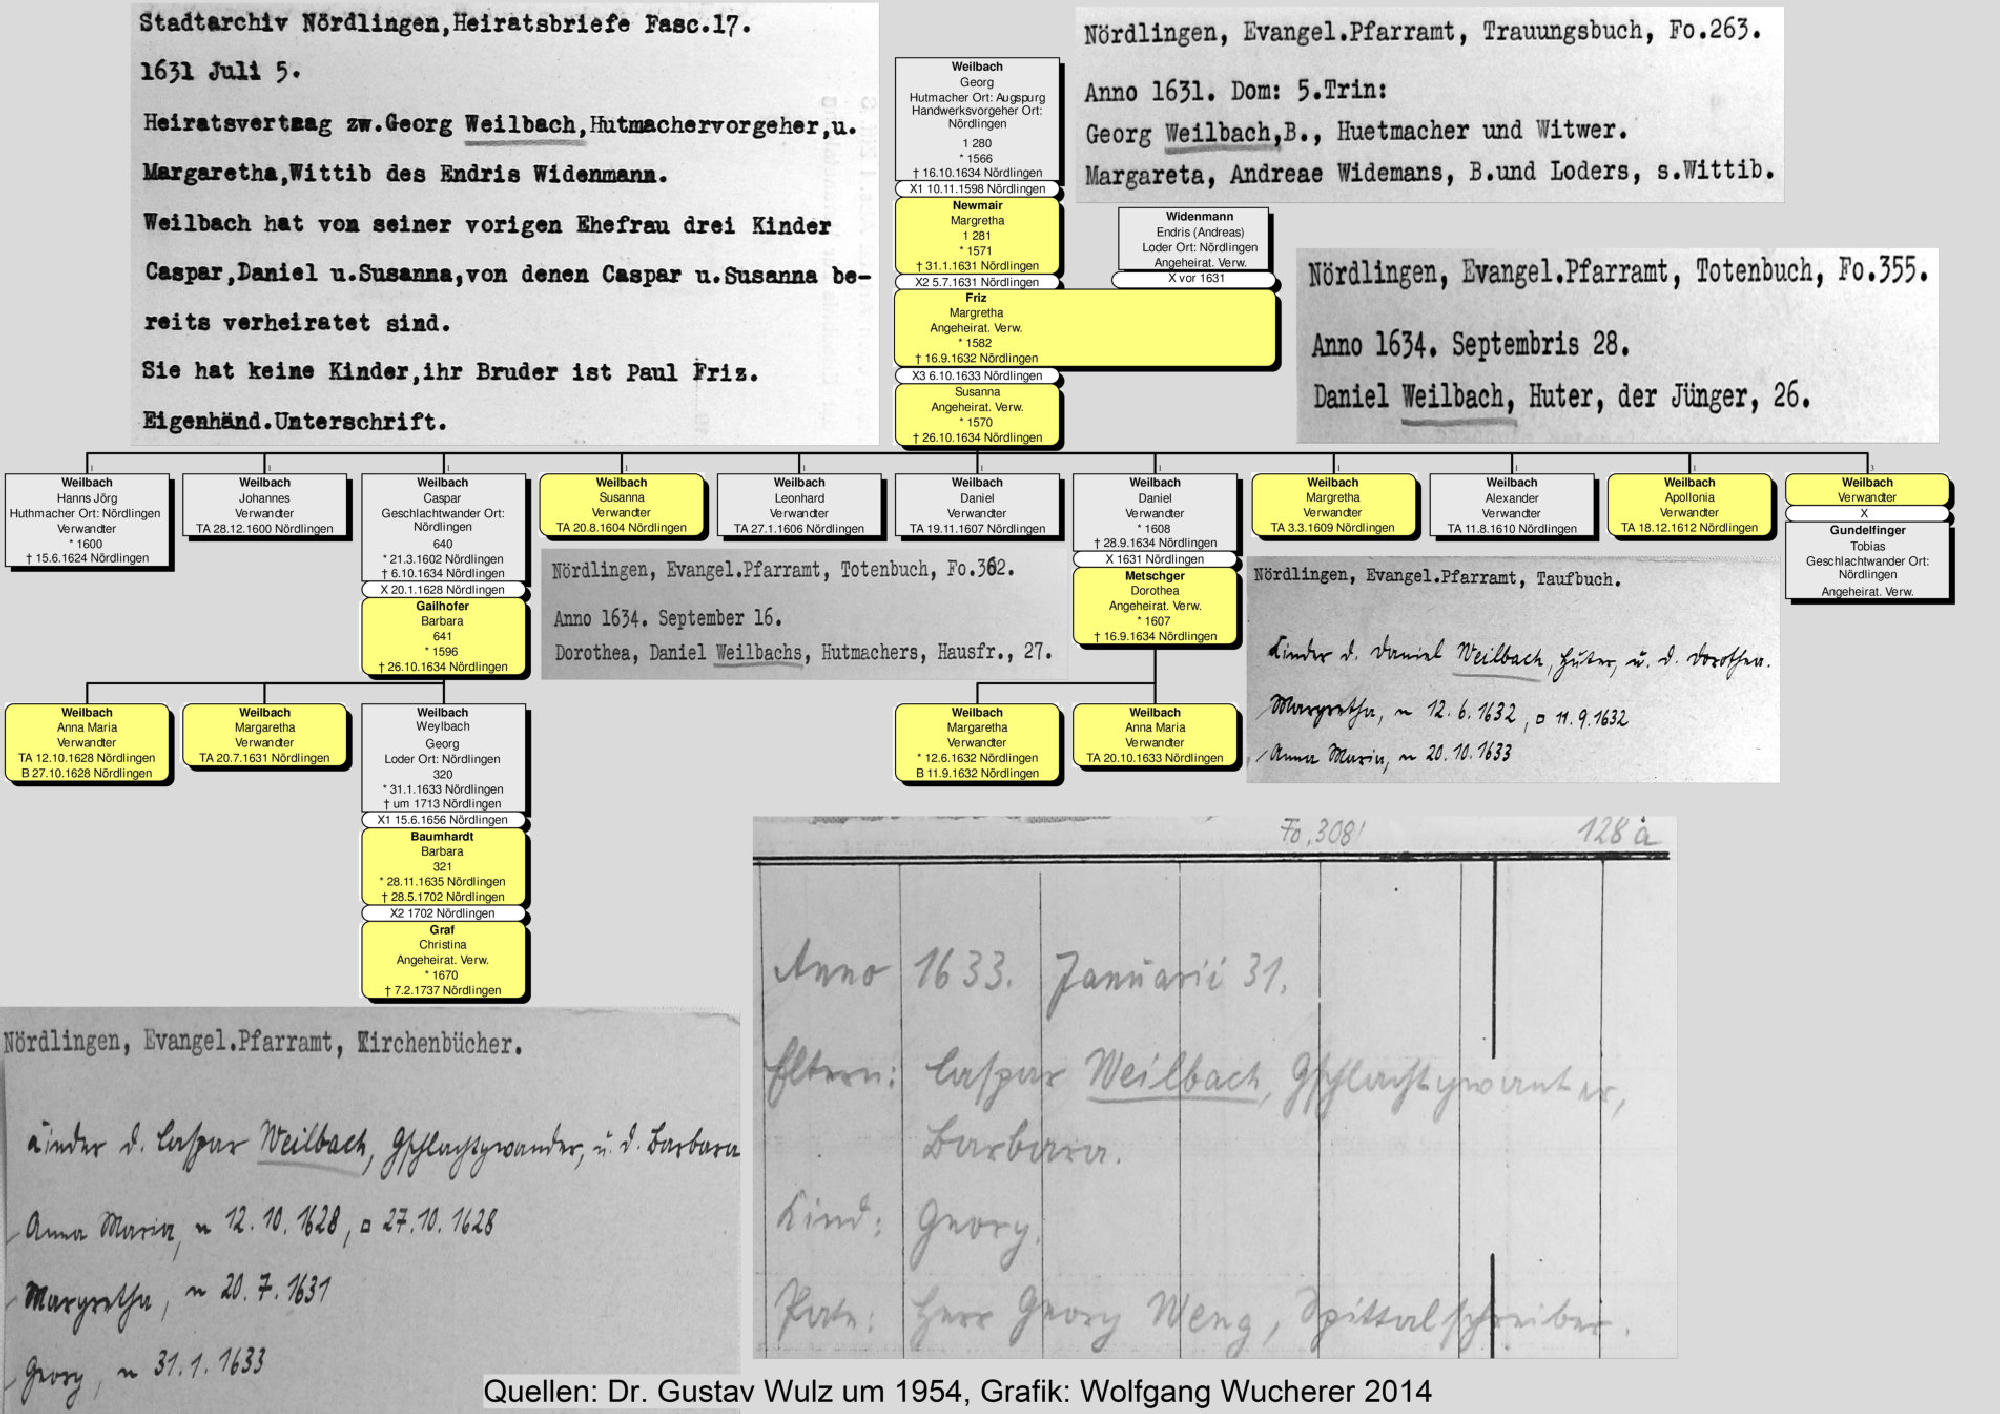 Stadtarchiv Nördlingen,Heiratsbriefe Fasc.17.
1631 Juli 5.
Heiratsvertaag zw.Georg Weilbach,Hutmachervorgeher,u.
Margaretha,Wittib des Endris Widenmann.
Weilbach hat von seiner vorigen Ehefrau drei Kinder
Caspar,Daniel u.Susanna,von denen Caspar u.Susanna be-
reits verheiratet sind.
Sie hat keine Kinder,ihr Bruder ist Paul Friz.
Eigenhänd.Unterschrift.
Weilbach
Georg
Hutmacher Ort: Augspurg
Handwerksvorgeher Ort:
Nördlingen
1 280
* 1566
† 16.10.1634 Nördlingen
X1 10.11.1598 Nördlingen
Newmair
Margretha
1 281
* 1571
† 31.1.1631 Nördlingen
X2 5.7.1631 Nördlingen
Friz
Margretha
Angeheirat. Verw.
* 1582
† 16.9.1632 Nördlingen
X3 6.10.1633 Nördlingen
Susanna
Angeheirat. Verw.
* 1570
† 26.10.1634 Nördlingen
Widenmann
Endris (Andreas)
Loder Ort: Nördlingen
Angeheirat. Verw.
X vor 1631
Nördlingen, Evangel.Pfarramt, Trauungsbuch, Fo.263.
Anno 1631. Dom: 5.Trin:
Georg Weilbach,B., Huetmacher und Witwer.
Margareta, Andreae Widemans, B.und Loders, s.Wittib.
Nördlingen, Evangel.Pfarramt, Totenbuch, Fo.355.
Anno 1634. Septembris 28.
Daniel Weilbach, Huter, der Jünger, 26.
Weilbach
Hanns Jörg
Huthmacher Ort: Nördlingen
Verwandter
* 1600
† 15.6.1624 Nördlingen
Weilbach
Johannes
Verwandter
TA 28.12.1600 Nördlingen
Weilbach
Caspar
Geschlachtwander Ort:
Nördlingen
640
* 21.3.1602 Nördlingen
† 6.10.1634 Nördlingen
X 20.1.1628 Nördlingen
Gailhofer
Barbara
641
* 1596
† 26.10.1634 Nördlingen
Weilbach
Susanna
Verwandter
TA 20.8.1604 Nördlingen
Weilbach
Leonhard
Verwandter
TA 27.1.1606 Nördlingen
Weilbach
Daniel
Verwandter
TA 19.11.1607 Nördlingen
Weilbach
Daniel
Verwandter
* 1608
† 28.9.1634 Nördlingen
X 1631 Nördlingen
Metschger
Dorothea
Angeheirat. Verw.
* 1607
† 16.9.1634 Nördlingen
Weilbach
Margretha
Verwandter
TA 3.3.1609 Nördlingen
Weilbach
Alexander
Verwandter
TA 11.8.1610 Nördlingen
Weilbach
Apollonia
Verwandter
TA 18.12.1612 Nördlingen
3
Weilbach
Verwandter
X
Gundelfinger
Tobias
Geschlachtwander Ort:
Nördlingen
Angeheirat. Verw.
Nördlingen, Evangel.Pfarramt, Totenbuch, Fo.362.
Anno 1634. September 16.
Dorothea, Daniel Weilbachs, Hutmachers, Hausfr., 27.
Nördlingen, Evangel.Pfarramt, Taufbuch.
Kinder d. Daniel Weilbach, Huter, u. d. Dorothea.
Margretha, ~ 12.6.1632, □ 11.9.1632
Anna Maria, ~ 20.10.1633
Weilbach
Anna Maria
Verwandter
TA 12.10.1628 Nördlingen
B 27.10.1628 Nördlingen
Weilbach
Margaretha
Verwandter
TA 20.7.1631 Nördlingen
Weilbach
Weylbach
Georg
Loder Ort: Nördlingen
320
* 31.1.1633 Nördlingen
† um 1713 Nördlingen
X1 15.6.1656 Nördlingen
Baumhardt
Barbara
321
* 28.11.1635 Nördlingen
† 28.5.1702 Nördlingen
X2 1702 Nördlingen
Graf
Christina
Angeheirat. Verw.
* 1670
† 7.2.1737 Nördlingen
Weilbach
Margaretha
Verwandter
* 12.6.1632 Nördlingen
B 11.9.1632 Nördlingen
Weilbach
Anna Maria
Verwandter
TA 20.10.1633 Nördlingen
Fo.308
128 a
Anno 1633. Januarii 31.
Eltern: Caspar Weilbach, Gschlachtgwanter,
Barbara.
Kind: Georg.
Pate: Herr Georg Weng, Spittalschreiber.
Nördlingen, Evangel.Pfarramt, Kirchenbücher.
Kinder d. Caspar Weilbach, Gschlachtgwander, u. d. Barbara
Anna Maria, ~ 12.10.1628, □ 27.10.1628
Margretha, ~ 20.7.1631
Georg, ~ 31.1.1633
Quellen: Dr. Gustav Wulz um 1954, Grafik: Wolfgang Wucherer 2014